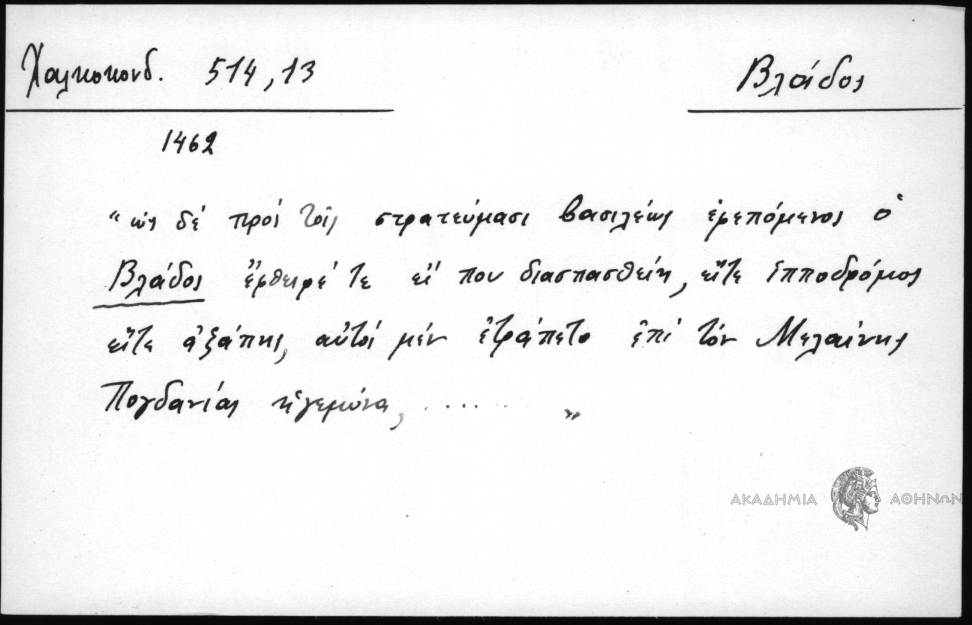 Χαλκοκονδ. 514,13
Βλάδος
1462
"ὡς δέ πρός τοῖς στρατεύμασι βασιλέως ἐφεπόμενος ὁ
Βλάδος ἔφθειρέ τε εἴ που διασπασθείη, εἴτε ἱπποδρόμος
εἴτε ἀζάπης, αὐτός μέν ἐτράπετο ἐπί τόν Μελαίνης
Πογδανίας ἡγεμόνα, ........ "
ΑΚΑΔΗΜΙΑ ΑΘΗΝΩΝ